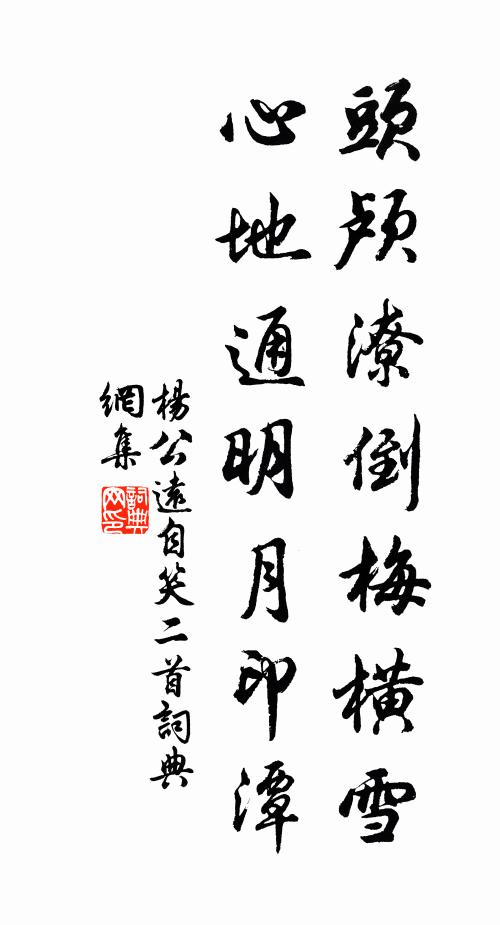 頭顱潦倒梅橫雪
心地通明月印潭
楊公遠自笑二首詞典
網集
詞典
网印